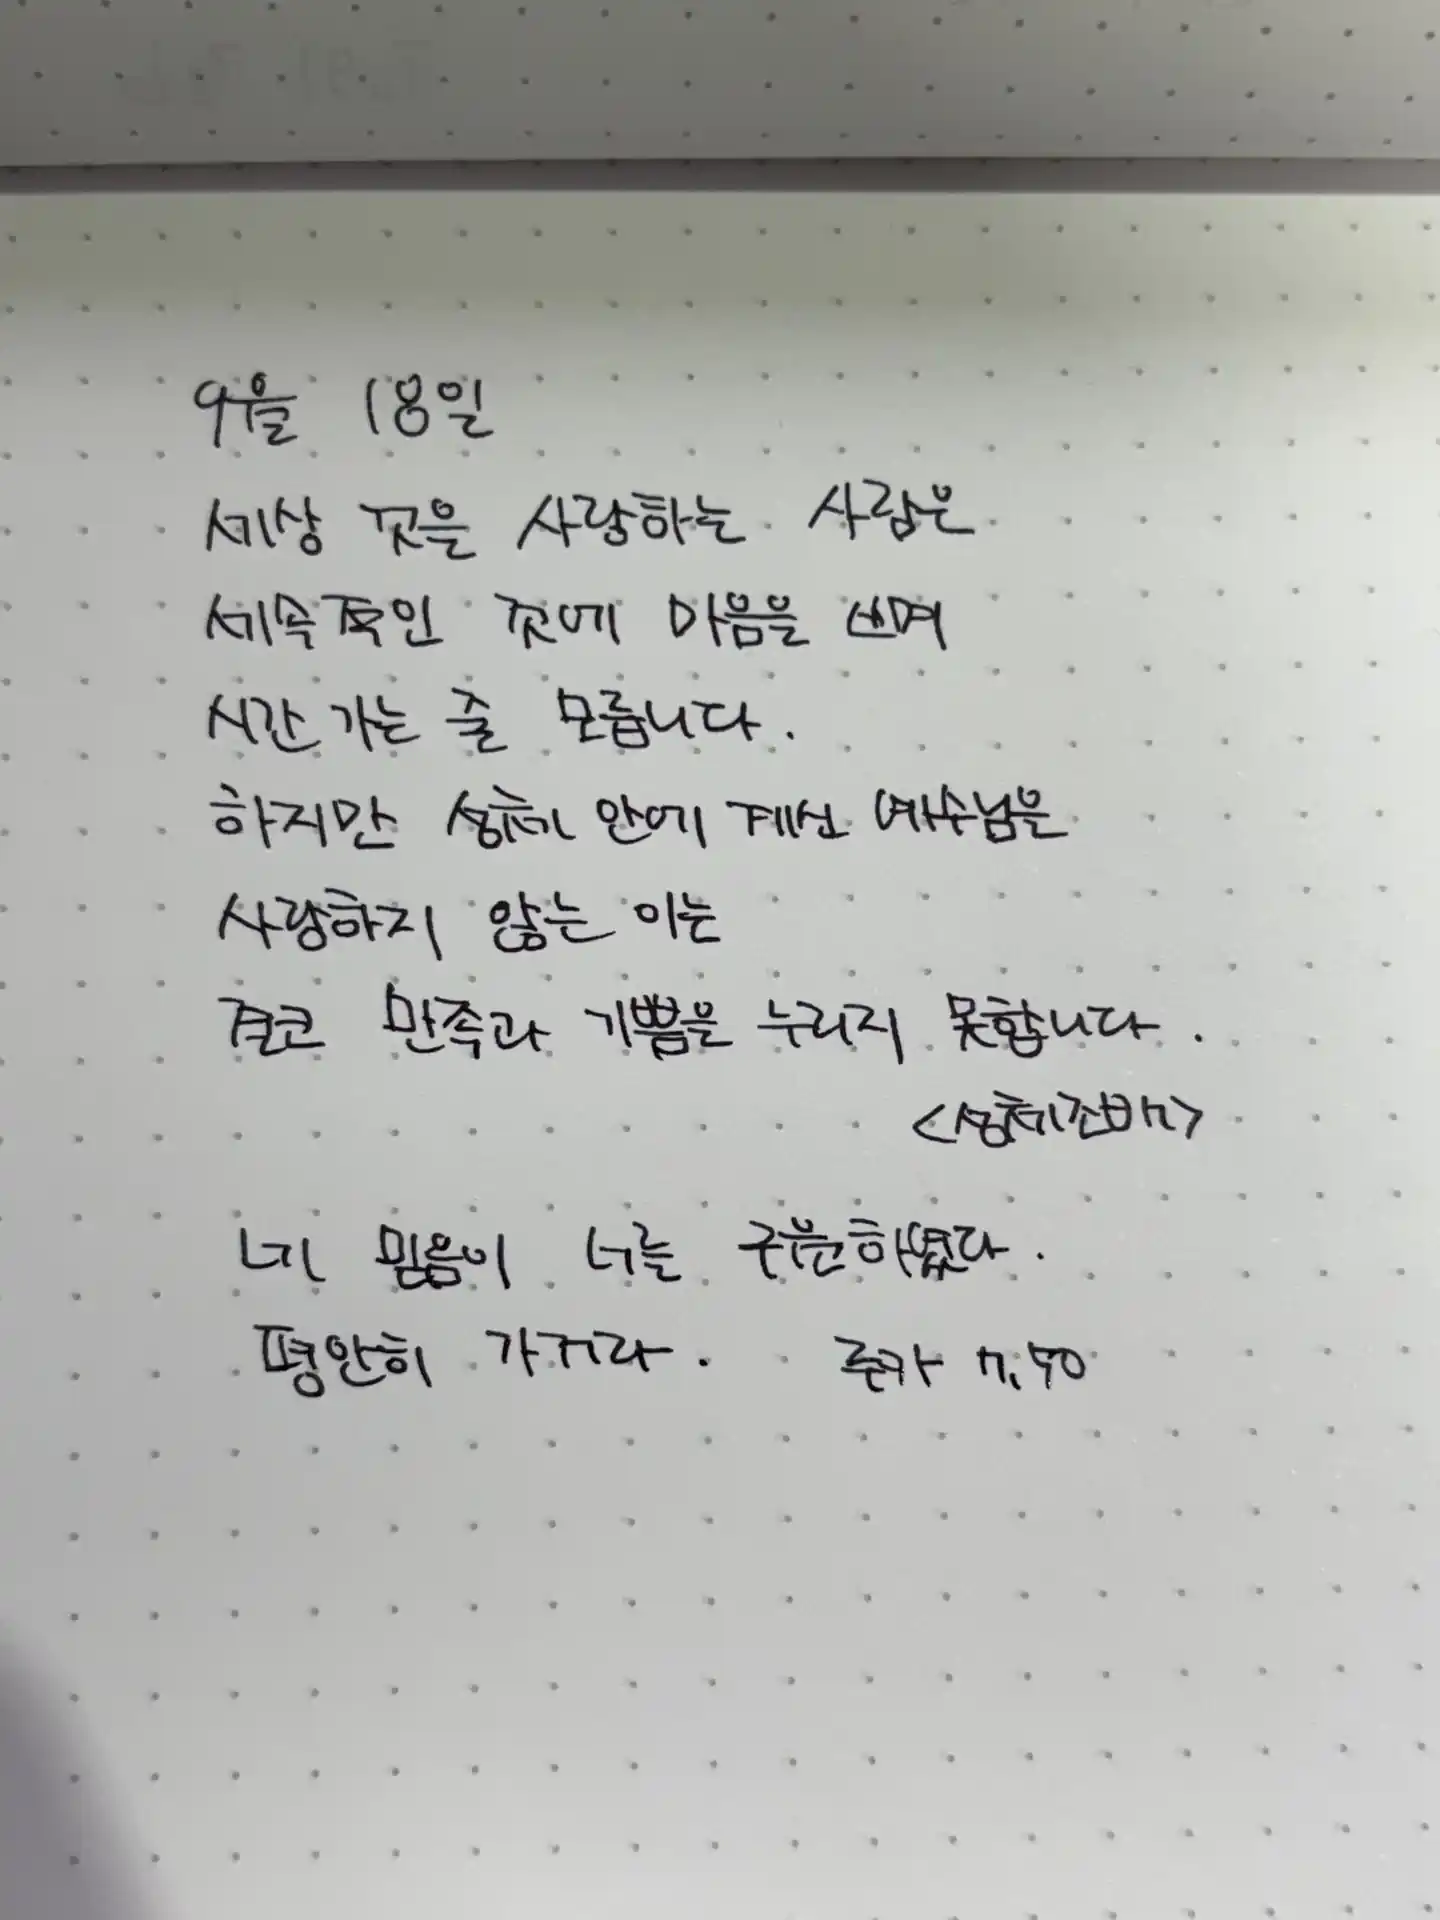 9월 18일
세상 것을 사랑하는 사람은
세속적인 것에 마음을 쓰며
시간 가는 줄 모릅니다.
하지만 성체 안에 계신 예수님은
사랑하지 않는 이는
결코 만족과 기쁨을 누리지 못합니다.
<성체조배>
네 믿음이 너를 구원하였다.
평안히 가거라. 루카 7,50